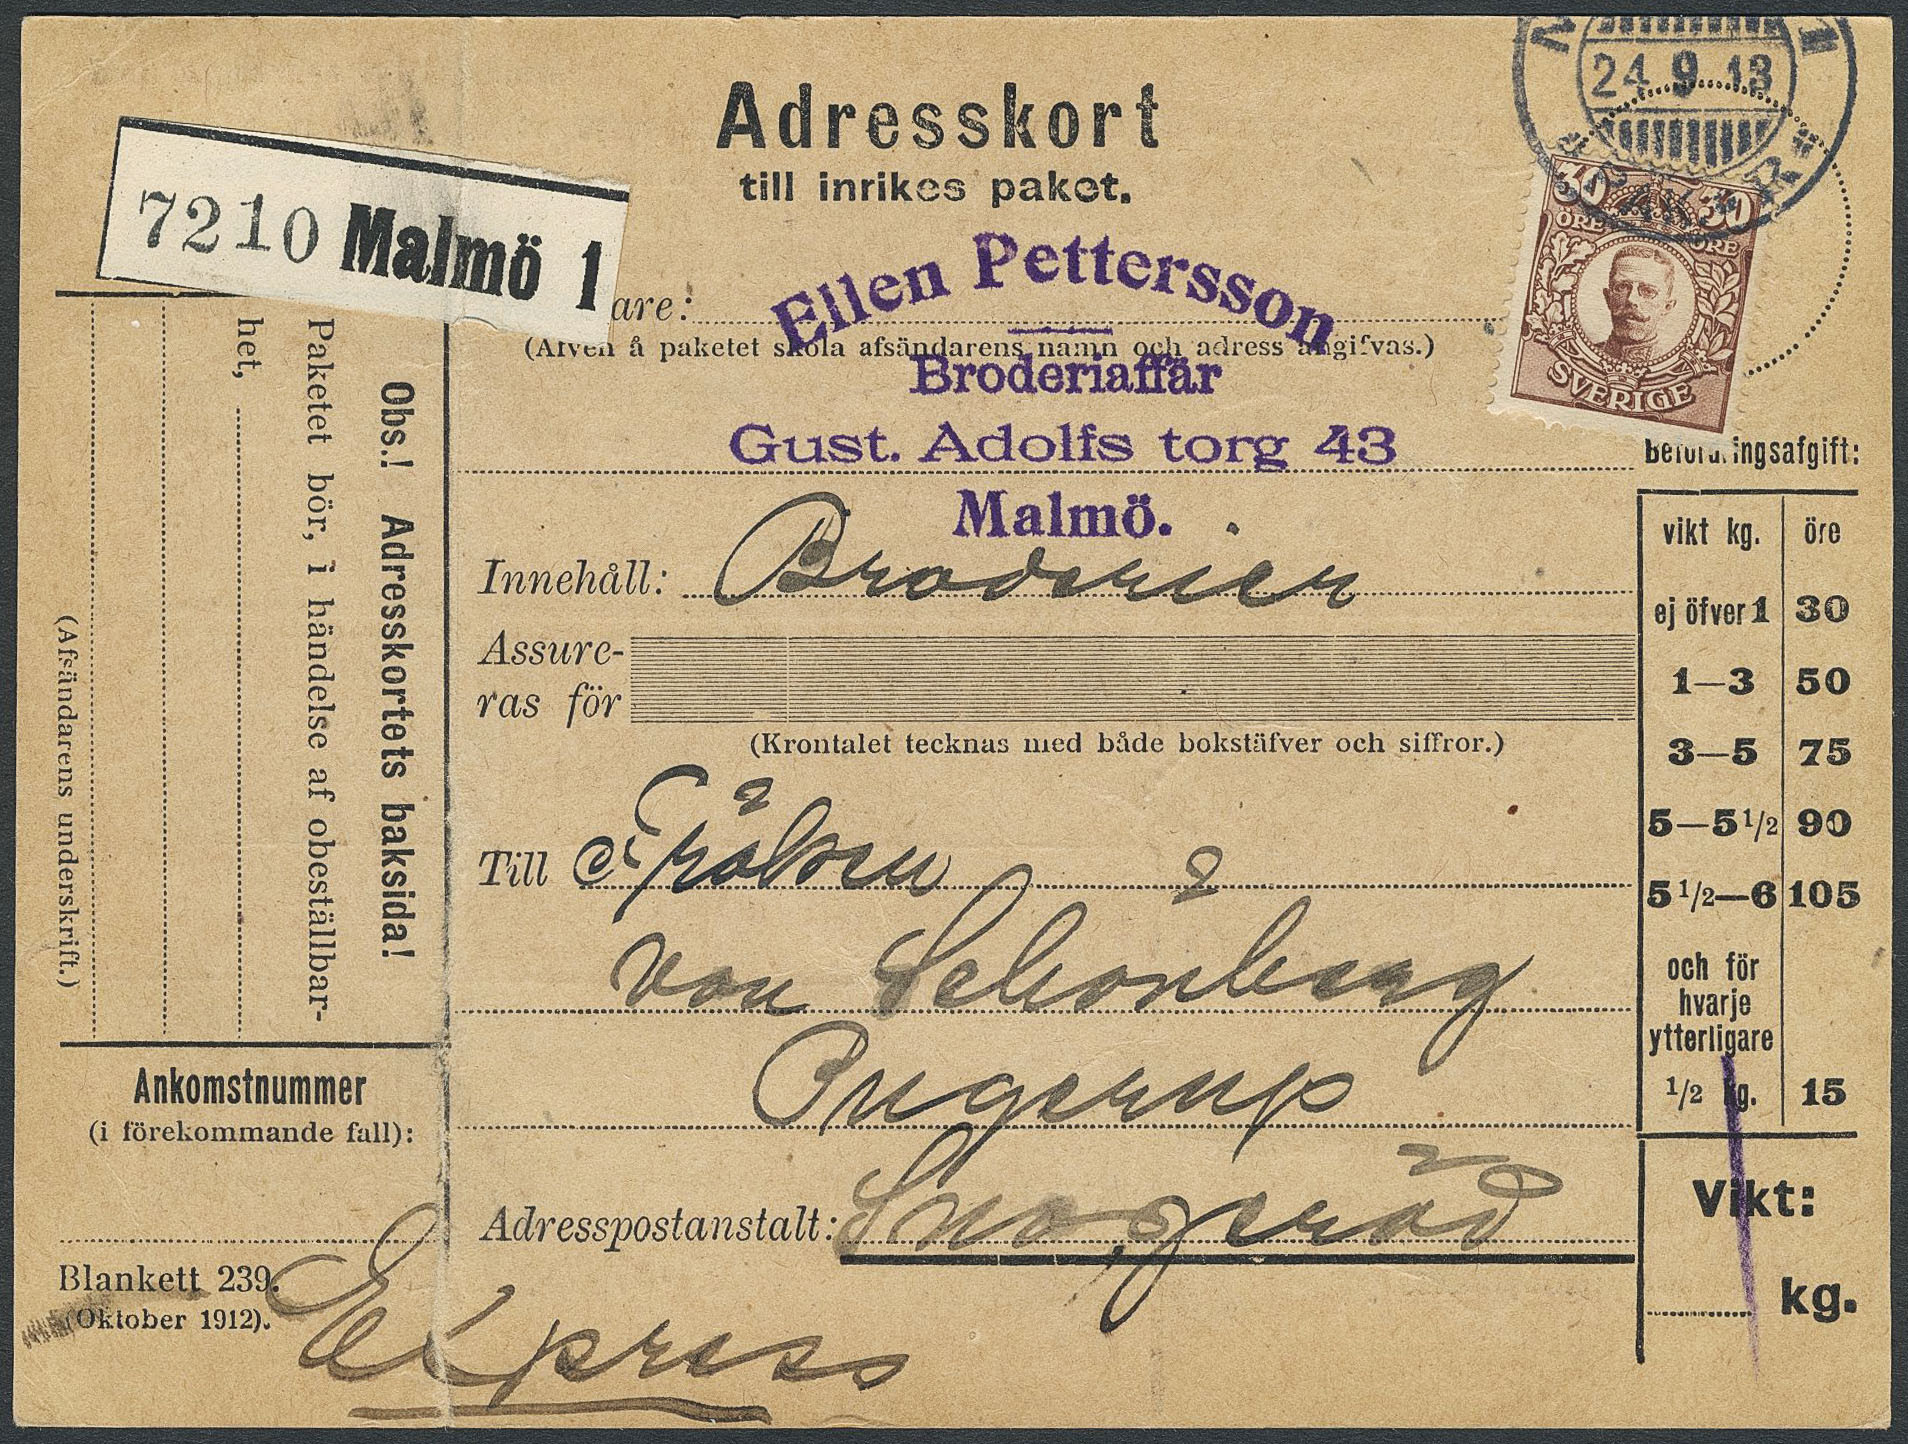 24.9.13
Adresskort
till inrikes paket.
7210 Malmö 1
30 30
ÖRE ÖRE
SVERIGE
are:
Ellen Pettersson
(Äfven å paketet skola afsändarens namn och adress angifvas.)
Broderiaffär
Gust. Adolfs torg 43
Malmö.
Innehåll: Broderier
Assure-
ras för
(Krontalet tecknas med både bokstäfver och siffror.)
Till Fröken
von Schönberg
Pugerup
Adresspostanstalt: Snogeröd
Express
Befordringsafgift:
vikt kg. öre
ej öfver 1 30
1—3 50
3—5 75
5—5 1/2 90
5 1/2—6 105
och för
hvarje
ytterligare
1/2 kg. 15
Vikt:
kg.
Obs.! Adresskortets baksida!
Paketet bör, i händelse af obeställbar-
het,
(Afsändarens underskrift.)
Ankomstnummer
(i förekommande fall):
Blankett 239.
(Oktober 1912).